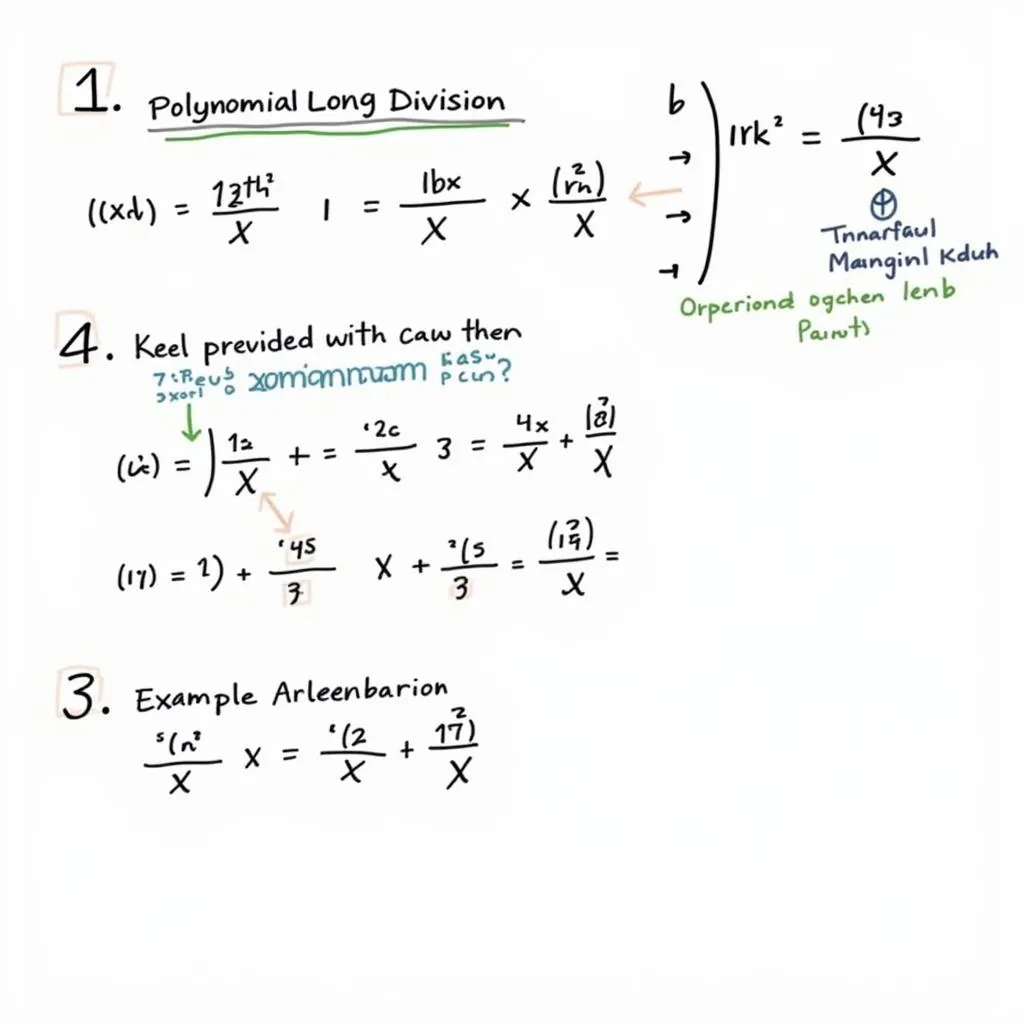 1. Polynomial Long Division
((xd) = 12th² / X 1 = 1bx / X × (rn²) / X
b ) 1rk² = (43 / X
→
→
→
⊕
Tnnarfaul
Manginl Kduh
Orperiond ogchen lenb
Paints
4. Keel previded with caw then
xomionmuom
= ) 12 / X + = '2c / x 3 = 4x / X + |8|² / X
(17) = 2) + '45 / 3 X + ²(5 / 3 = (19)² / X =
3. Example Arleenbarion
⁵(n² / X X = ‘(2 / X + 17)² / X